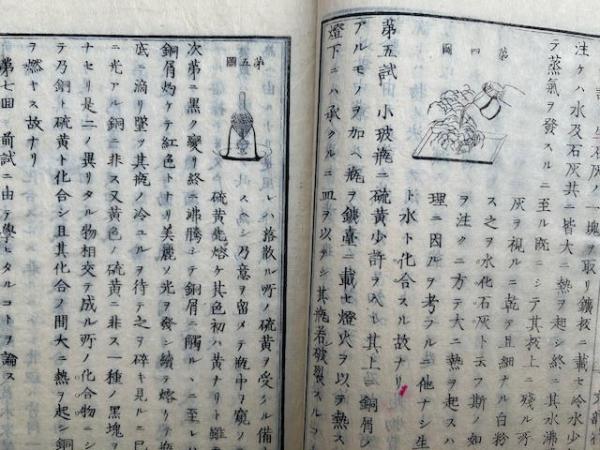 生石灰ノ一塊ヲ取リ鐵板ニ載セ冷水少
注ケハ水及石灰共ニ皆大ニ熱ヲ起シ終ニ其水沸
テ蒸氣ヲ發スルニ至ル既ニシテ其板上ニ殘ル所
第四圖
灰ヲ視ルニ乾テ且細ナル白粉
ス之ヲ水化石灰ト云フ斯ノ如
ヲ注クニ方テ大ニ熱ヲ起スハ
理ニ因ルヲ考フルニ他ナシ生
ト水ト化合スル故ナリ
第五試 小玻瓶ニ硫黄少許ヲ入レ其上ニ銅屑シ
アルモノヲ加ヘ瓶ヲ鐵臺ニ載セ燈火ヲ以テ熱ス
燈下ニハ承クルニ皿ヲ以テシ其瓶若破裂スルコ
第五圖
レハ落散ル所ノ硫黄ヲ受クル備
ス而シ乃意ヲ留メテ瓶中ヲ窺フ
硫黄先熔ケ其色初ハ黄ナリト雖
次第ニ黒ク變リ終ニ沸騰シテ銅屑ニ觸ルヽニ至レハ
銅屑灼ケテ紅色トナリ美麗ノ光ヲ發シ續テ熔リテ瓶
底ニ滴リ墜ヲ其瓶ノ冷ユルヲ待テ之ヲ碎キ見ルニ已
ニ光アル銅ニ非ス又黄色ノ硫黄ニ非ス一種ノ黒塊ヲ
ナセリ是二ノ異リタル物相交テ成ル所ノ化合物ニシ
テ乃銅ト硫黄ト化合シ且其化合ノ間大ニ熱ヲ起シ銅
ヲ燃ヤス故ナリ
第七回 前試ニ由テ學ヒタルコトヲ論ス